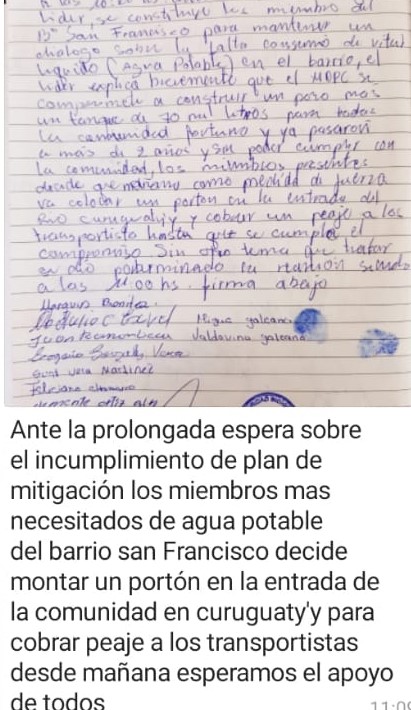 lider, se constituye los miembro del
Bº San Francisco para mantener un
dialogo sobre la falta consumo de vital
liquido (Agua Potable) en el barrio, el
lider explica brevemente que el MOPC se
compromete a construir un poso mas
un tanque de 70 mil litros para todas
la comunidad y ya pasaron
a mas de 2 años y sin poder cumplir con
la comunidad, los miembros presentes
decide que mañana como medida di fuerza
va colocar un porton en la entrada del
Rio curuguatyjy y cobrar un peaje a los
transportista hasta que se cumpla el
compromiso Sin otro tema que tratar
se dio por terminado la reunion siendo
a las 11:00 hs. firma abajo
galeano
Valdovina galeano
Vera
Vera Martinez
Feliciano
clemente ortiz
Ante la prolongada espera sobre
el incumplimiento de plan de
mitigación los miembros mas
necesitados de agua potable
del barrio san Francisco decide
montar un portón en la entrada de
la comunidad en curuguaty'y para
cobrar peaje a los transportistas
desde mañana esperamos el apoyo
de todos